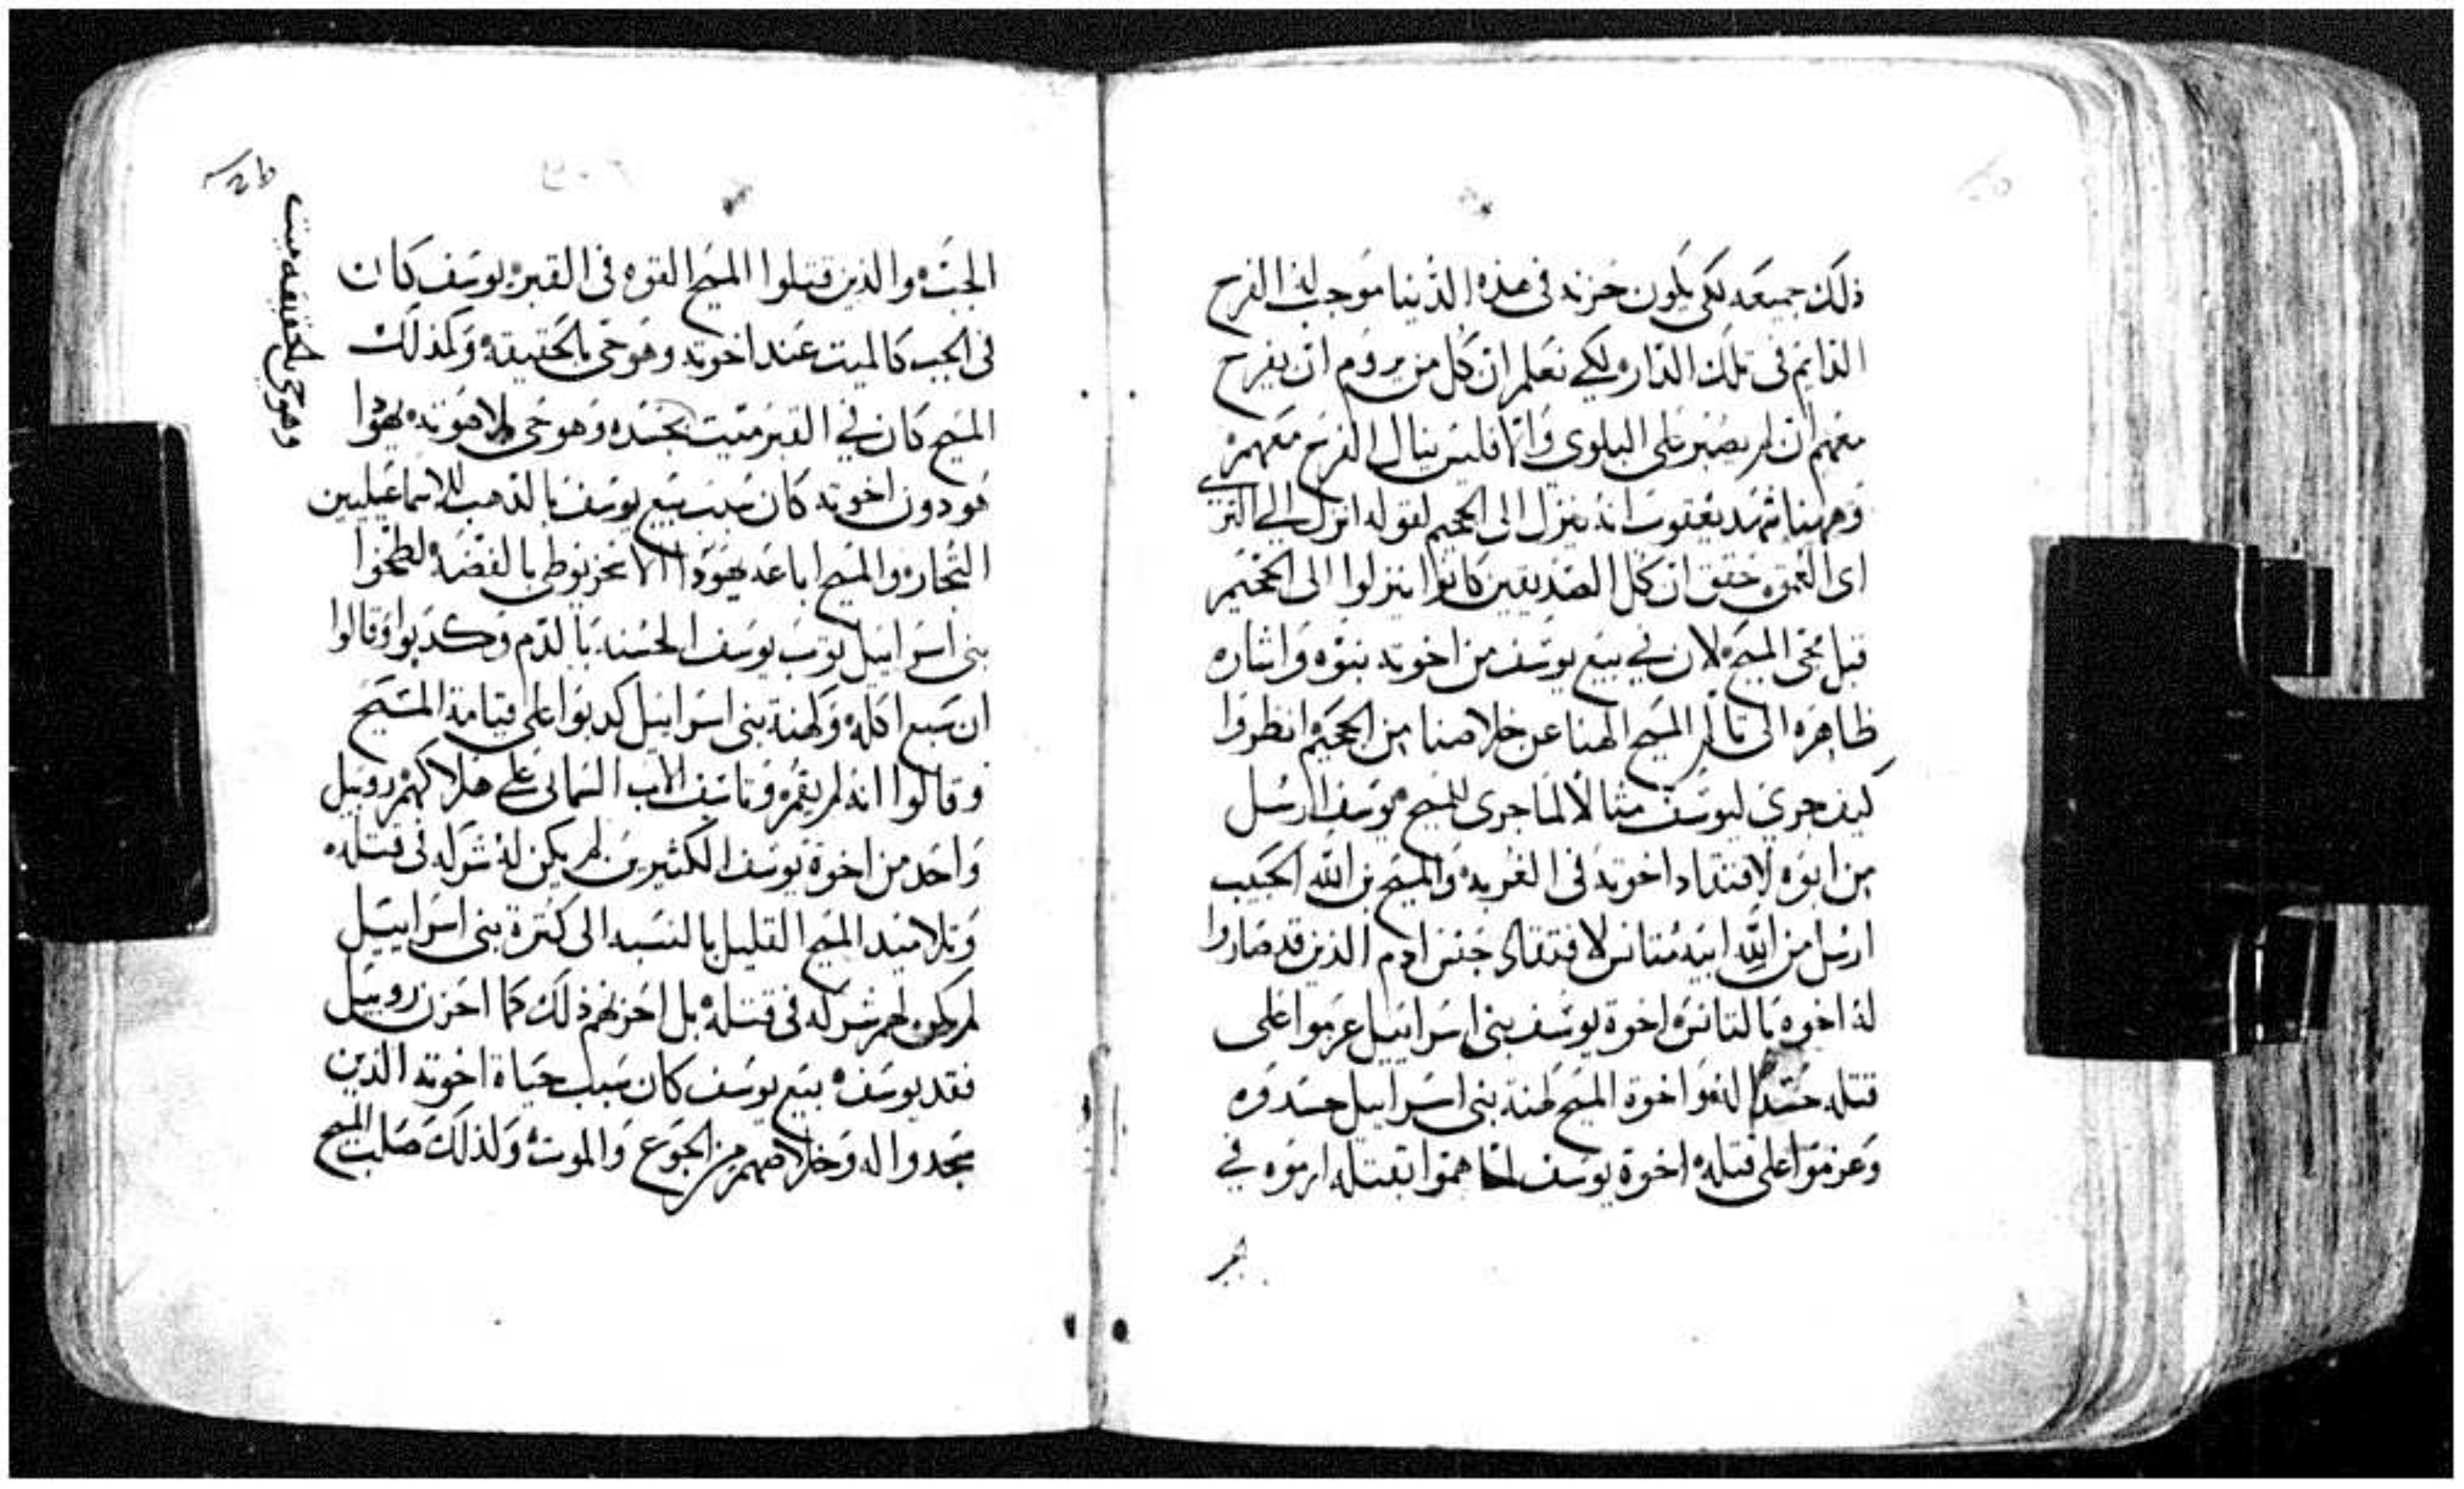 ذلك جميعه لكي يكون حزنه في هذه الدنيا موجب له الفرح
الدايم في تلك الدار ولكي نعلم ان كل من يروم ان يفرح
معهم ان لم يصبر على البلوي والا فليس ينال الفرح معهم
وههنا شهد يعقوب انه ينزل الى الجحيم لقوله انزل الي الثرى
اي العمق حقق ان كل الصديقين كانوا ينزلوا الى الجحيم
قبل مجى المسيح لان في بيع يوسف من اخوته نبوه واشاره
ظاهره الى تالم المسيح الهنا عن خلاصنا من الجحيم انظروا
كيف جري ليوسف مثالا لما جرى للمسيح يوسف ارسل
من ابوه لافتقاد اخوته في الغربه والمسيح بن الله الحبيب
ارسل من الله ابيه متانس لافتقاد جنس ادم الذين قد صاروا
له اخوه بالتانس اخوة يوسف بني اسراييل عزموا على
قتله حسدا له واخوة المسيح كهنة بني اسراييل حسدوه
وعزموا على قتله اخوة يوسف لما هموا بقتله ارموه في
الجب والذين قتلوا المسيح القوه في القبر يوسف كان
في الجب كالميت عند اخوته وهو حي بالحقيقه وكذلك
المسيح كان في القبر ميت بجسده وهو حي بلاهوته يهودا
هو دون اخوته كان سبب بيع يوسف بالذهب للاسماعيليين
التجار والمسيح اباعه يهودا الاسخريوطي بالفضه لطخوا
بني اسراييل ثوب يوسف الحسنه بالدم وكذبوا وقالوا
ان سبع اكله وكهنة بني اسراييل كدبوا على قيامة المسيح
وقالوا انه لم يقم وتاسف الاب السماني على هلاكهم روبيل
واحد من اخوة يوسف الكثيرين لم يكن له شركه في قتله
وتلاميد المسيح القليل بالنسبه الى كثرة بني اسراييل
لم يكن لهم شركه في قتله بل احزنهم ذلك كما احزن روبيل
فقد يوسف بيع يوسف كان سبب حياة اخوته الذين
سجدوا له وخلاصهم من الجوع والموت ولذلك صلب المسيح
وهو حي بالحقيقه ميت